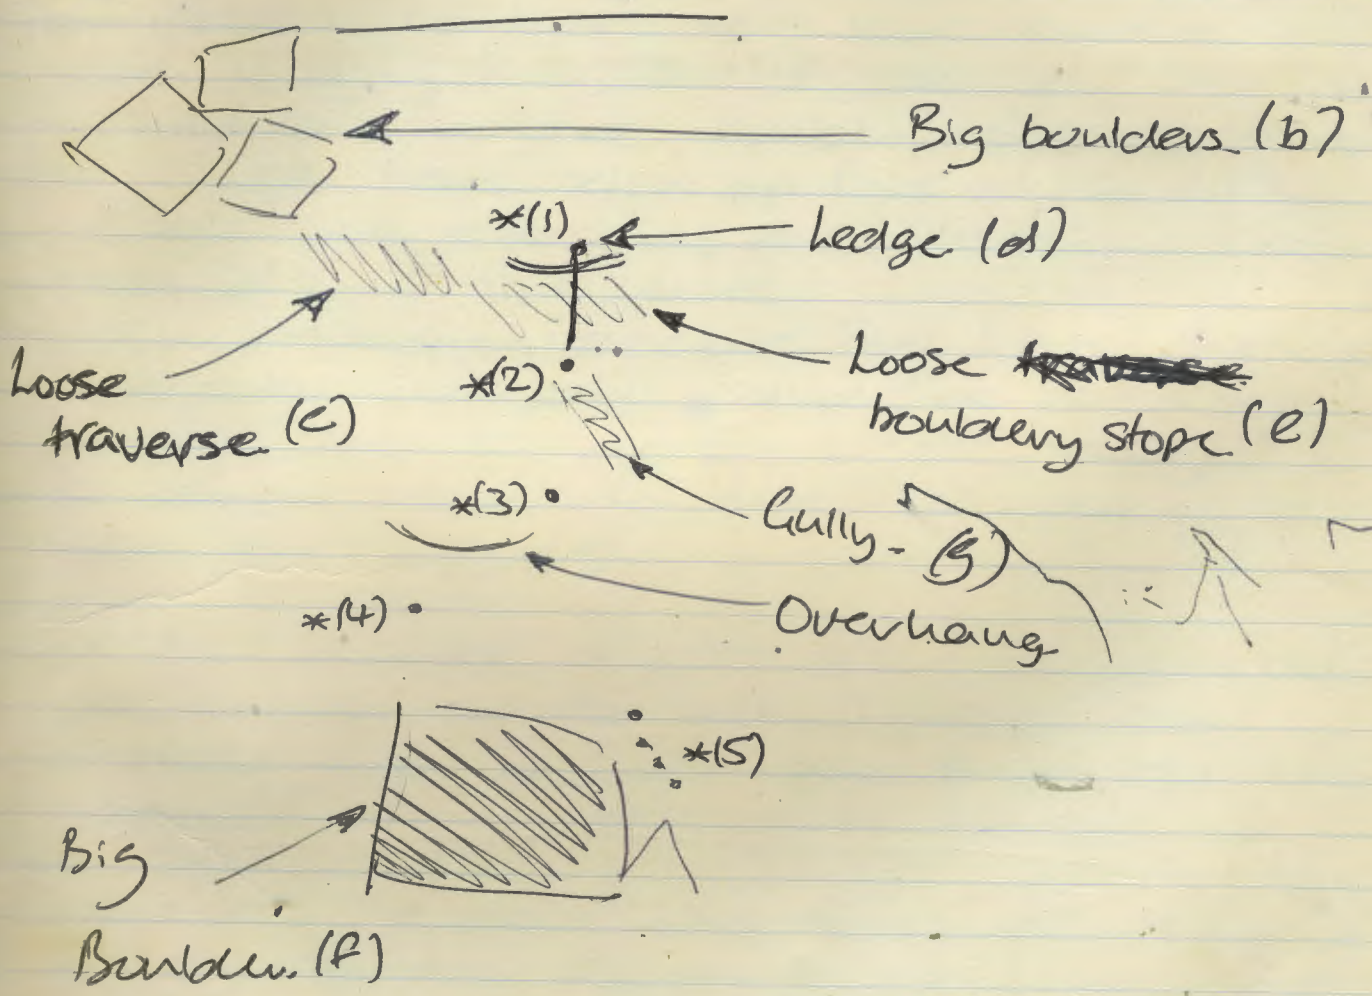 Big boulders (b)
*(1)
Ledge (d)
Loose
traverse (c)
*(2)
Loose
bouldery slope (e)
*(3)
Gully - (g)
*(4)
Overhang
*(5)
Big
Boulder (f)